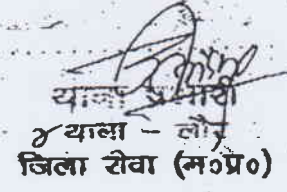 थाना प्रभारी
थाना - लौर
जिला रीवा (म०प्र०)